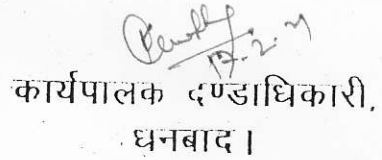 17.2.21
कार्यपालक दण्डाधिकारी,
धनबाद।